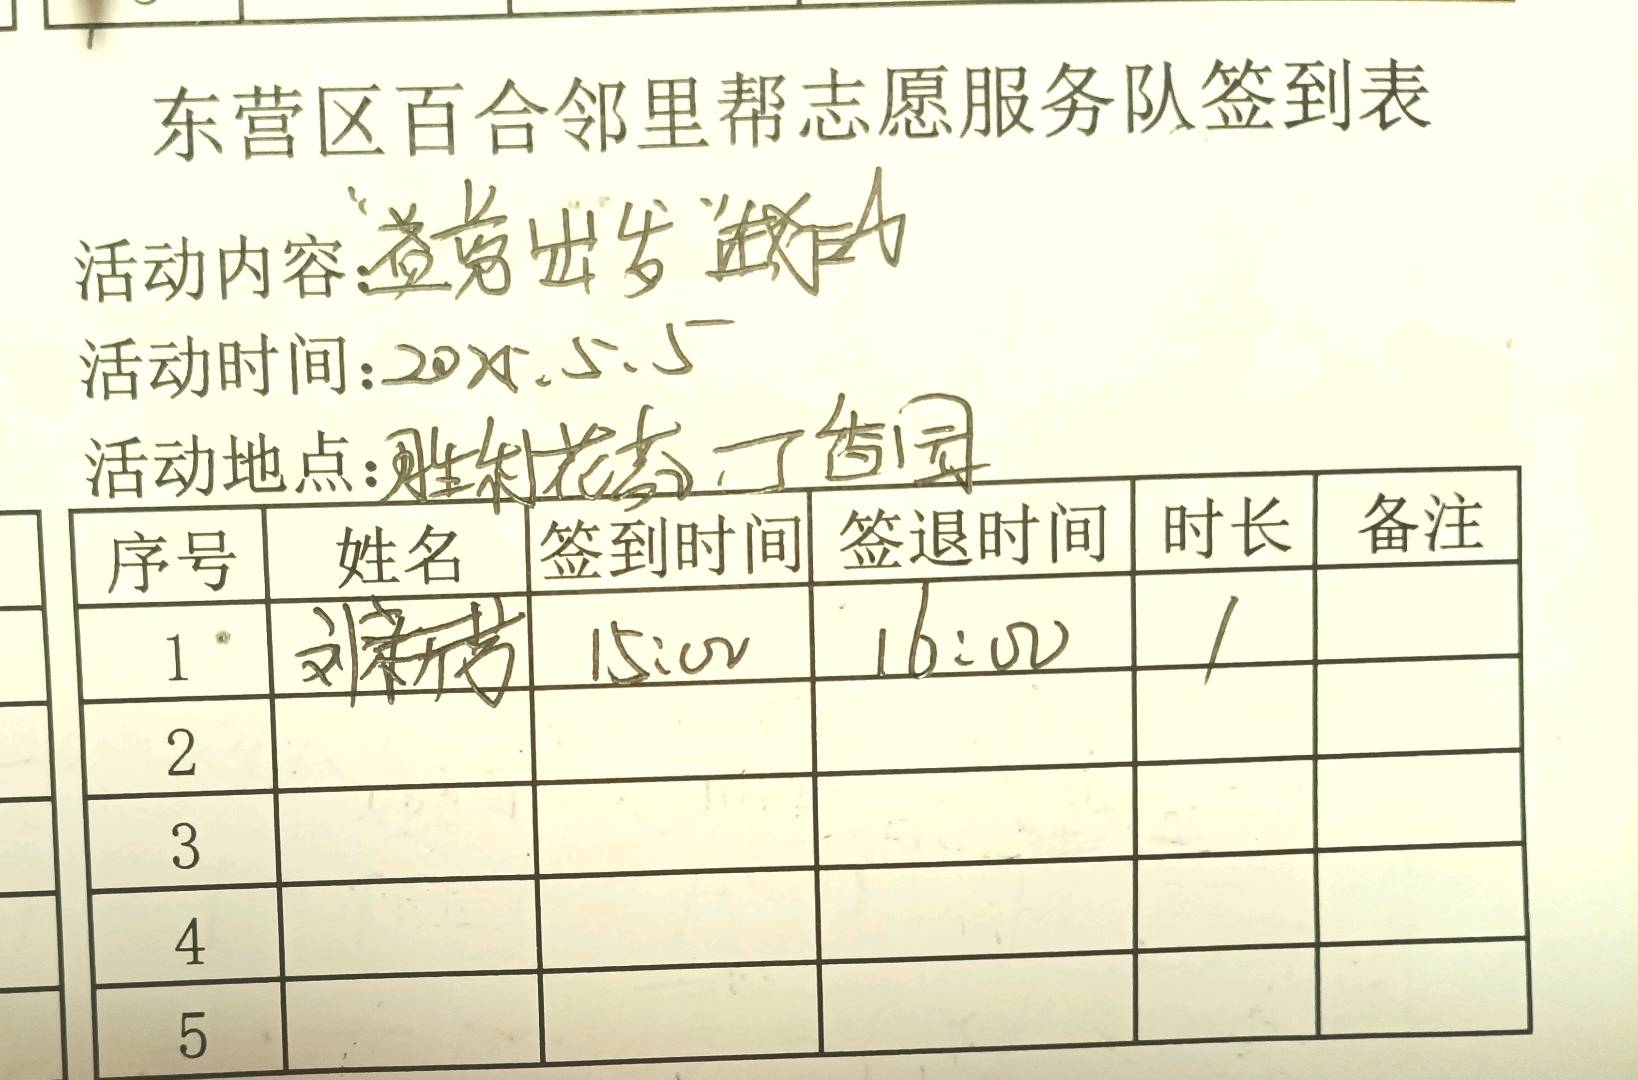 东营区百合邻里帮志愿服务队签到表
活动内容:"益剪出发"
活动时间:2025.5.5
活动地点:胜利花苑丁香园
序号 姓名 签到时间 签退时间 时长 备注
1 刘 芳 15:00 16:00 1
2
3
4
5